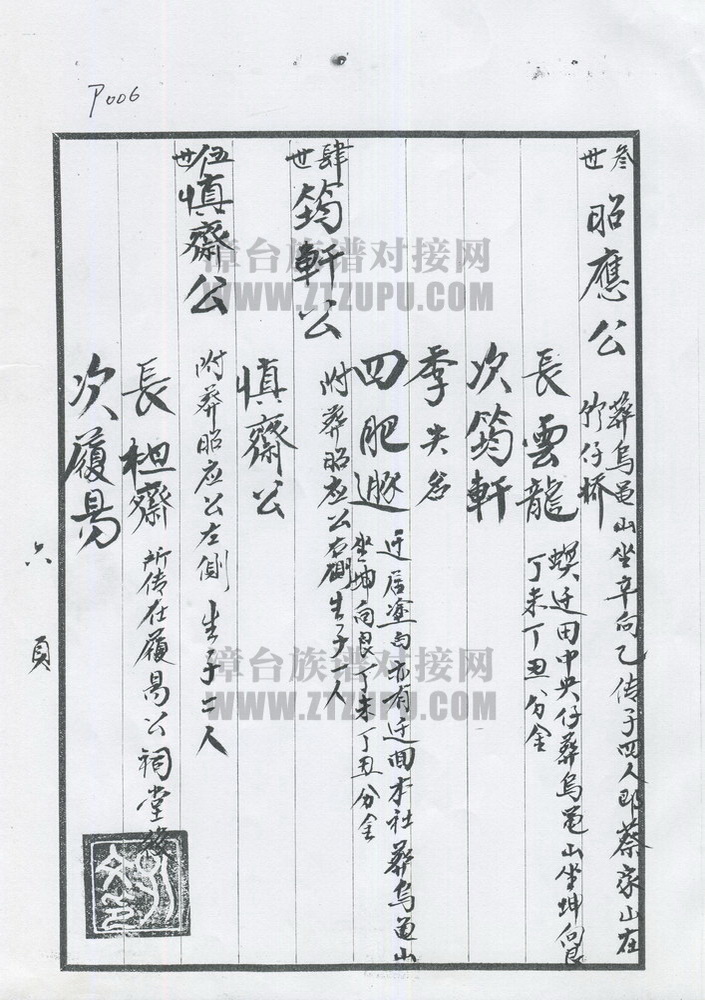 P006
叁世 昭應公 葬乌黾山坐辛向乙传子四人即蔡家山在
竹仔桥
長雲龍 迁田中央仔葬乌黾山坐坤向艮
丁未丁丑分金
次筠軒
季失名
四肥遯 迁居塗内亦有迁回本社葬乌黾山
坐坤向艮丁未丁丑分金
肆世 筠軒公 附葬昭应公右側生子一人
慎齋公
伍世 慎齋公 附葬昭应公左側生子二人
長坦齋 所传在履易公祠堂後
次履易
六頁
漳台族谱对接网
WWW.ZTZUPU.COM
漳台族谱对接网
WWW.ZTZUPU.COM